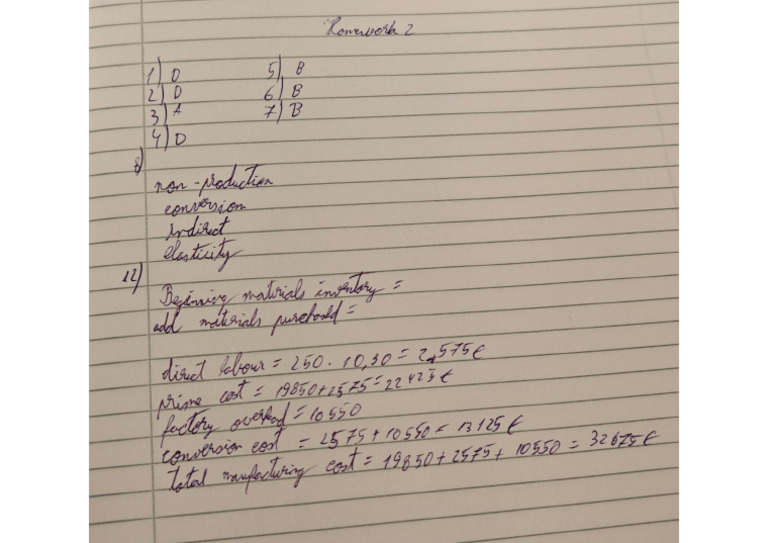 Homework 2
1) D 5) B
2) D 6) B
3) A 7) B
4) D
8)
non-production
conversion
indirect
elasticity
12)
Beginning materials inventory =
add materials purchased =
direct labour = 250 · 10,30 = 2,575€
prime cost = 19850+2575=22425€
factory overhead = 10550
conversion cost = 2575+10550 = 13125€
total manufacturing cost = 19850+2575+10550 = 32675€